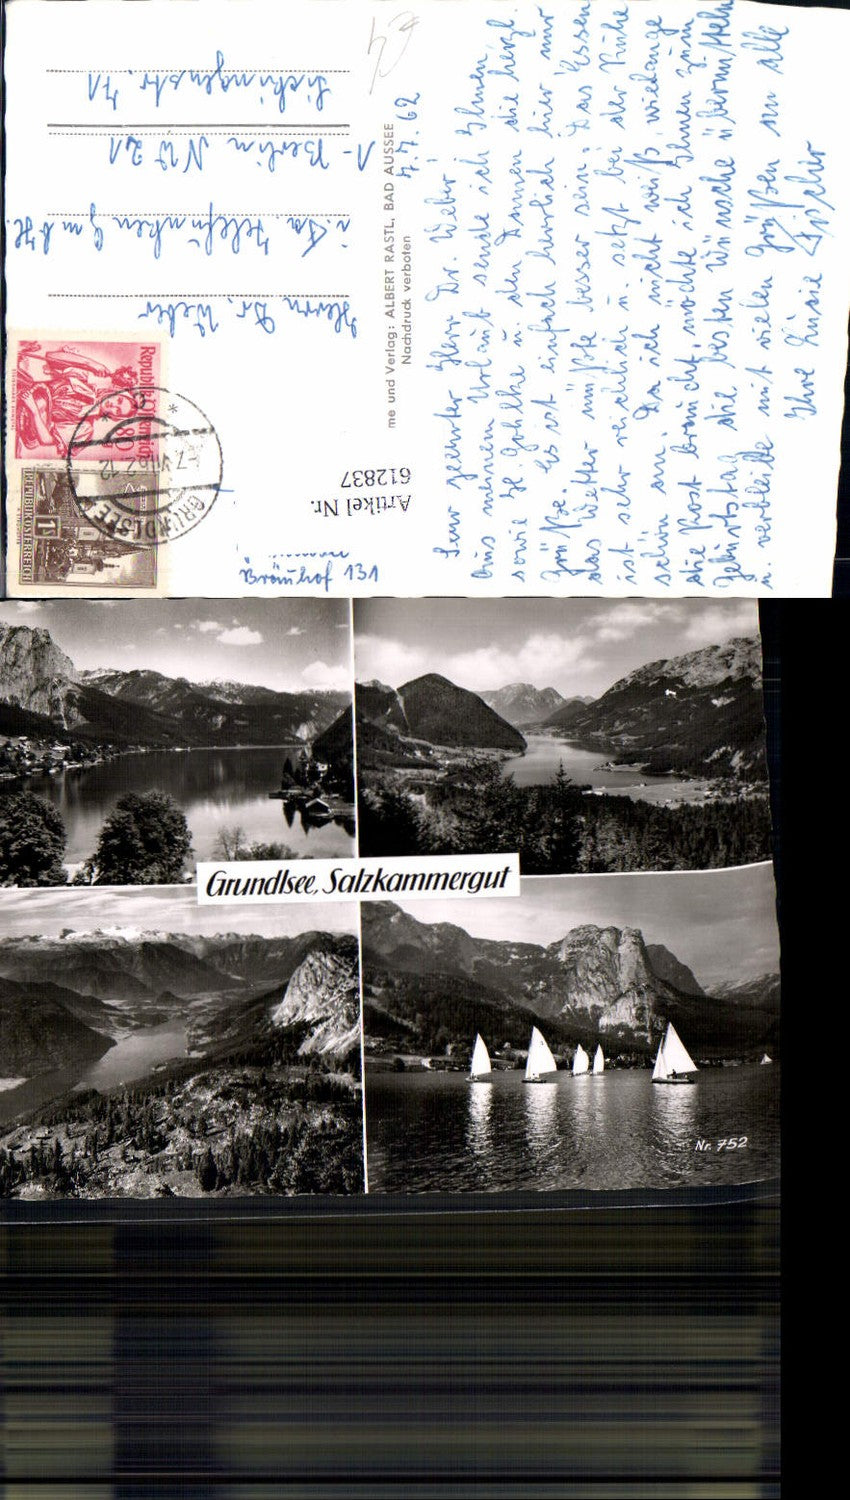 7.7.62
Sehr geehrter Herr Dr. Weber!
Aus meinem Urlaub sende ich Ihnen,
sowie H. Gohlke u. den Damen die herzl.
Grüße. Es ist einfach herrlich hier nur
das Wetter müßte besser sein. Das Essen
ist sehr reichlich u. setzt bei der Ruhe
schön an. Da ich nicht weiß, wielange
die Post braucht, möchte ich Ihnen zum
Geburtstag die besten Wünsche übermitteln
u. verbleibe mit vielen Grüßen an alle
Ihre Lucie Fischer
me und Verlag: ALBERT RASTL, BAD AUSSEE
Nachdruck verboten
Republik Österreich
80
REPUBLIK ÖSTERREICH
1S
GRUNDLSEE
-7.VII.62.12
Herrn Dr. Weber
i. Fa. Telefunken GmbH.
1-Berlin NW 21
Sickingenstr. 71
Artikel Nr.
612837
131
Grundlsee, Salzkammergut
Nr. 752